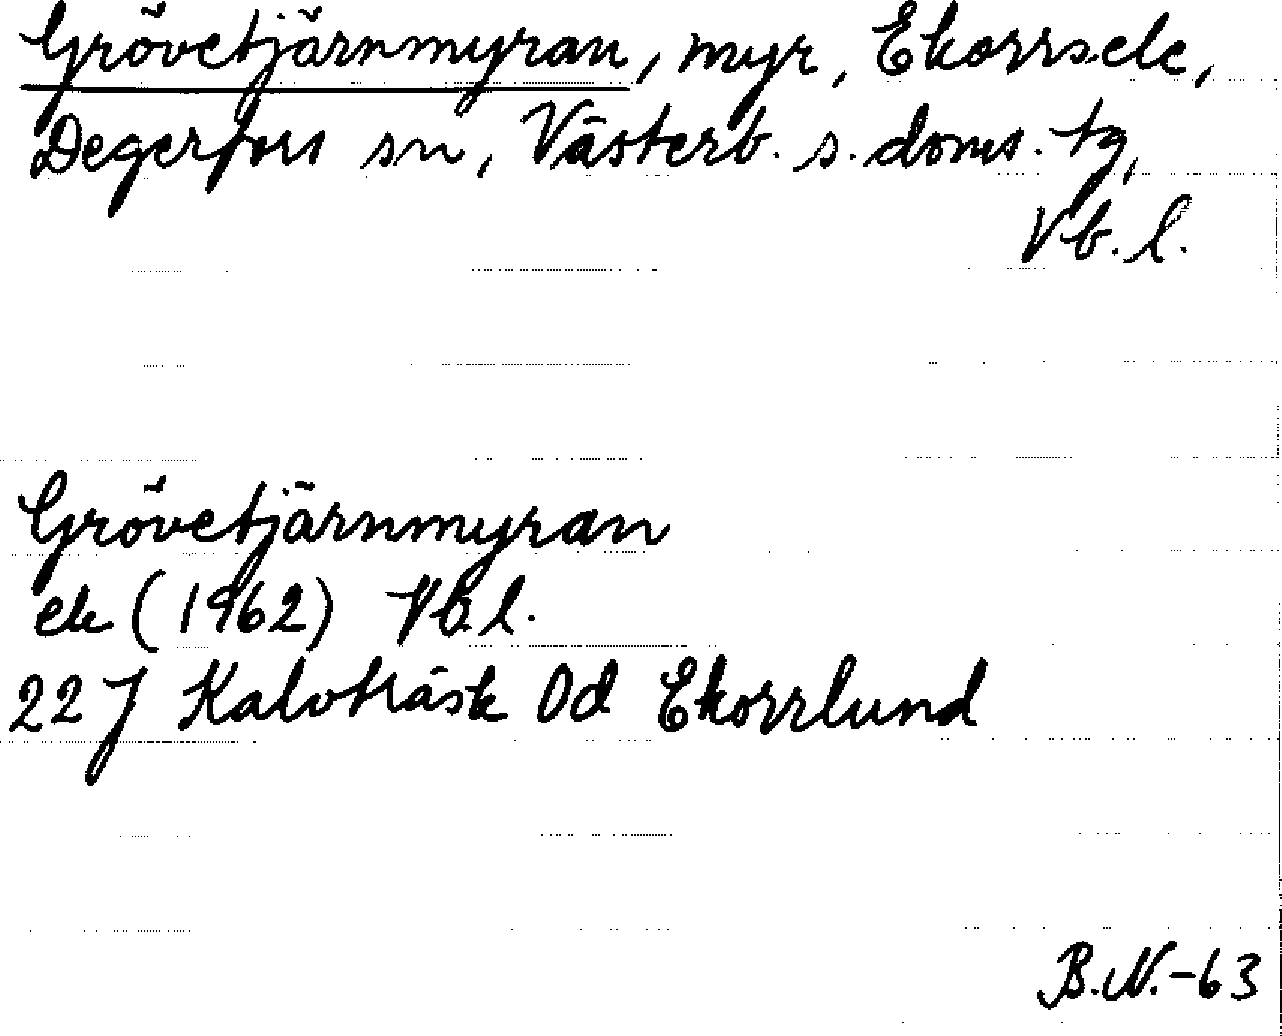 Grövetjärnmyran, myr, Ekorrsele,
Degerfors sn, Västerb. s. doms. tg,
Vb. l.
Grövetjärnmyran
ek (1962) Vb. l.
22 J Kalvträsk 0d Ekorrlund
B.N.-63